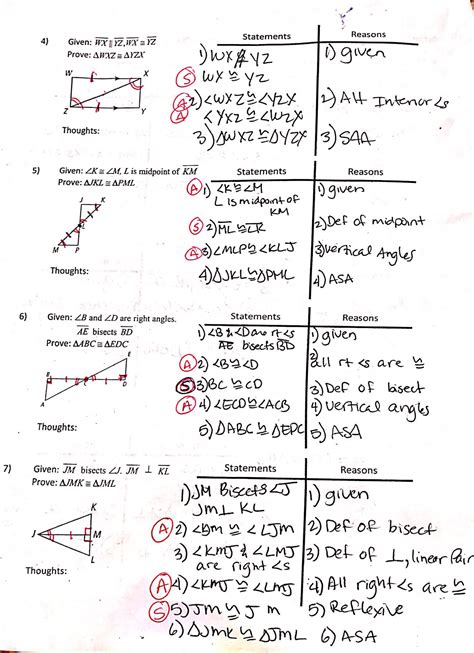 4) Given: WX ∥ YZ, WX ≅ YZ
Prove: ΔWXZ ≅ ΔYZX
W X
Z Y
Thoughts:
Statements Reasons
1) WX ∦ YZ 1) given
S WX ≅ YZ
A 2) <WXZ ≅ <YZX 2) Alt Interior <s
A <YXZ ≅ <WZX
3) ΔWXZ ≅ ΔYZX 3) SAA
5) Given: ∠K ≅ ∠M, L is midpoint of KM
Prove: ΔJKL ≅ ΔPML
J K
L
M P
Thoughts:
Statements Reasons
A 1) <K ≅ <M 1) given
L is midpoint of
KM
S 2) ML ≅ LK 2) Def of midpoint
A 3) <MLP ≅ <KLJ 3) vertical Angles
4) ΔJKL ≅ ΔPML 4) ASA
6) Given: ∠B and ∠D are right angles.
AE bisects BD
Prove: ΔABC ≅ ΔEDC
E
B C D
A
Thoughts:
Statements Reasons
1) <B & <D are rt <s 1) given
AE bisects BD
A 2) <B ≅ <D 2) all rt <s are ≅
S 3) BC ≅ CD 3) Def of bisect
A 4) <ECD ≅ <ACB 4) vertical angles
5) ΔABC ≅ ΔEDC 5) ASA
7) Given: JM bisects ∠J. JM ⊥ KL
Prove: ΔJMK ≅ ΔJML
K
J M
L
Thoughts:
Statements Reasons
1) JM Bisects <J 1) given
Jm ⊥ KL
A 2) ≅ <LJm 2) Def of bisect
3) <KmJ & <LMJ 3) Def of ⊥, linear Pair
are right <s
A 4) <KmJ ≅ <LmJ 4) All right <s are ≅
S 5) Jm ≅ Jm 5) Reflexive
6) ΔJmK ≅ ΔJmL 6) ASA